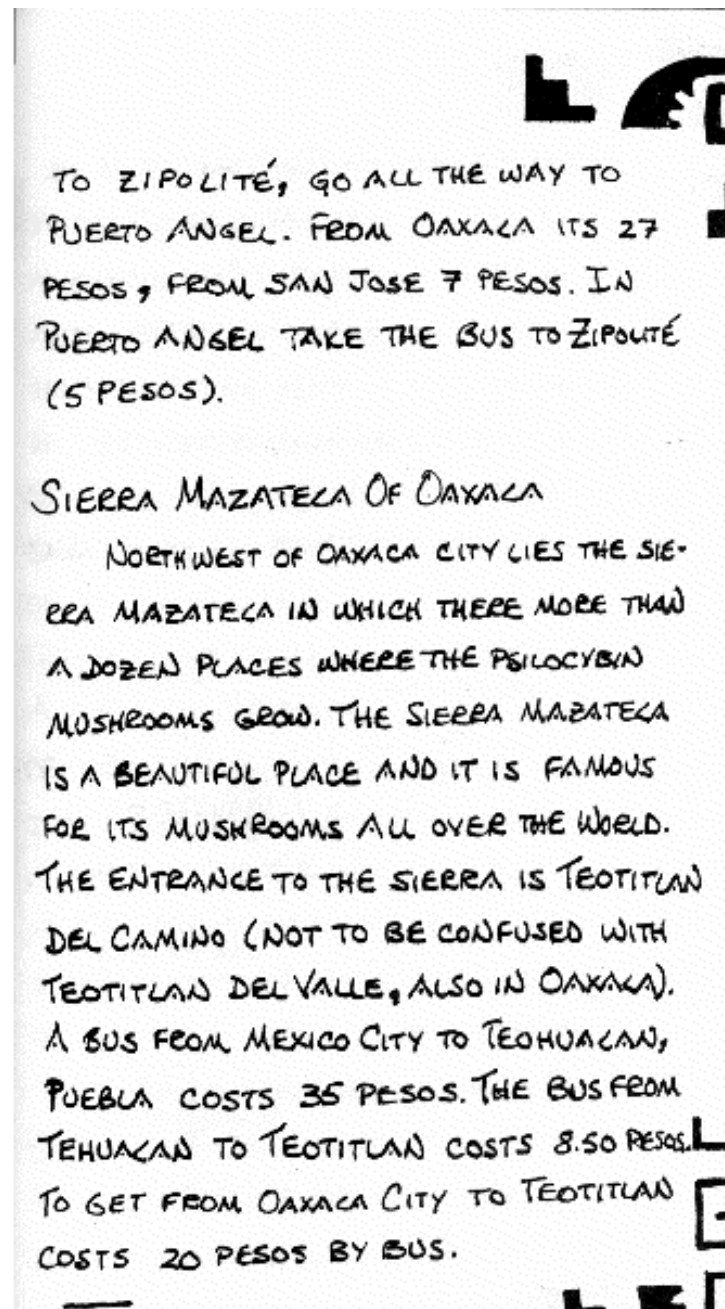 TO ZIPOLITÉ, GO ALL THE WAY TO
PUERTO ANGEL. FROM OAXACA ITS 27
PESOS, FROM SAN JOSE 7 PESOS. IN
PUERTO ANGEL TAKE THE BUS TO ZIPOLITÉ
(5 PESOS).
SIERRA MAZATECA OF OAXACA
NORTHWEST OF OAXACA CITY LIES THE SIE-
RRA MAZATECA IN WHICH THERE MORE THAN
A DOZEN PLACES WHERE THE PSILOCYBIN
MUSHROOMS GROW. THE SIERRA MAZATECA
IS A BEAUTIFUL PLACE AND IT IS FAMOUS
FOR ITS MUSHROOMS ALL OVER THE WORLD.
THE ENTRANCE TO THE SIERRA IS TEOTITLAN
DEL CAMINO (NOT TO BE CONFUSED WITH
TEOTITLAN DEL VALLE, ALSO IN OAXACA).
A BUS FROM MEXICO CITY TO TEOHUACAN,
PUEBLA COSTS 35 PESOS. THE BUS FROM
TEHUACAN TO TEOTITLAN COSTS 8.50 PESOS.
TO GET FROM OAXACA CITY TO TEOTITLAN
COSTS 20 PESOS BY BUS.